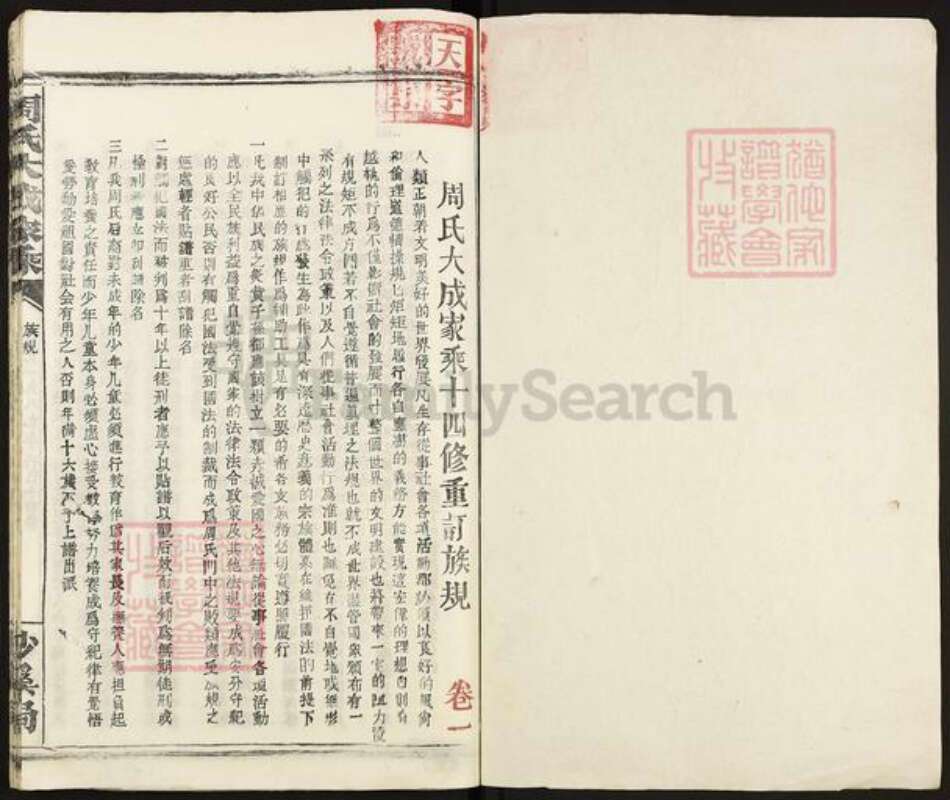 天字
周氏大成家乘十四修重訂族規
卷一
人類正朝着文明美好的世界發展凡生存從事社會各項活動都必須以良好的風尚
和倫理道德情操規規矩矩地履行各自應盡的義務方能實現這宏偉的理想否則有
越軌的行為不僅影响社會的發展而對整個世界的文明建設也將帶來一定的阻力諺
有規矩不成方圓若不自覺遵循普遍真理之法規也就不成世界盡管國家頒布有一
系列之法律法令政策以及人們從事社會活動行為准則也難免在不自覺地或無形
中觸犯的行為發生為此作為具有深遠歷史意義的宗族體系在維护國法的前提下
制訂相應的族規作為輔助工具是有必要的希各支族務必切實遵照履行
一凡我中华民族之炎黄子孫都應該樹立一顆赤誠愛國之心無論從事社會各項活動
應以全民族利益為重自觉遵守國家的法律法令政策及其他法規要成為安分守紀
的良好公民否則有觸犯國法受到國法的制裁而成為周氏門中之敗類應受族規之
懲處輕者貼譜重者刮譜除名
二對觸犯國法而被判為十年以上徒刑者應予以貼譜以觀后效而被判為無期徒刑或
極刑者應立即刮譜除名
三凡我周氏后裔對未成年的少年儿童必須進行教育作為其家長及撫養人應担負起
教育培養之責任而少年儿童本身必須虛心接受教導努力培養成為守紀律有覺悟
愛勞動愛祖國對社會有用之人否則年滿十六歲不予上譜出派
周氏大成家乘
族規
沙溪局
猶他家譜學會收藏
FamilySearch